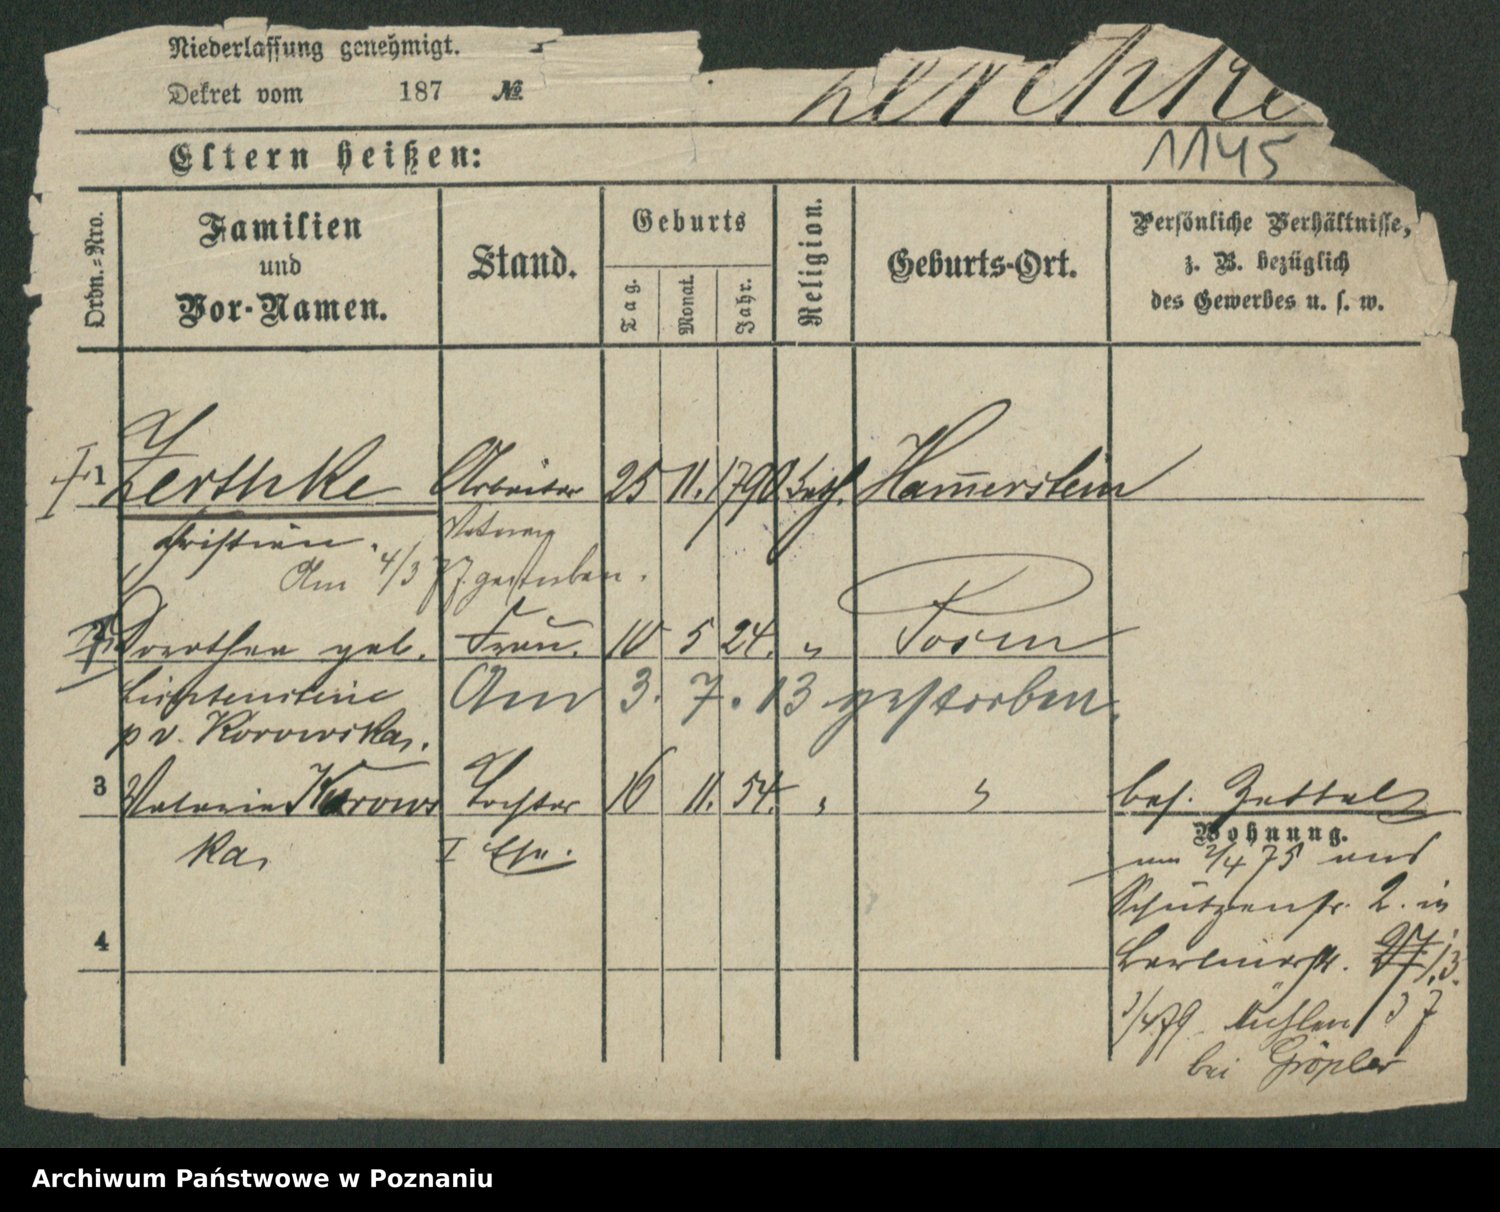 Niederlassung genehmigt.
Dekret vom 187 №
Zerthke
1145
Eltern heißen:
Ordn.-Nro.
Familien
und
Vor-Namen.
Stand.
Geburts
Tag.
Monat.
Jahr.
Religion.
Geburts-Ort.
Persönliche Verhältnisse,
z. B. bezüglich
des Gewerbes u. s. w.
1 Zerthke Arbeiter 25 11. 1790 Hamerstein
Christian.
Am 4/3 77 gestorben.
Dorothea geb. Frau. 10 5 24. " Posen
Lichtenstein Am 3. 7. 13 gestorben.
p v. Korowska.
3 Valeria Korows Tochter 16 11. 54. " "
ka, I Ehe.
bes. Zettel
Wohnung.
2/4 75 aus
Schützenstr. 2. in
Berlinerstr. 27 13.
3/4 79 Mühlen 37
bei Gröpler
4
Archiwum Państwowe w Poznaniu